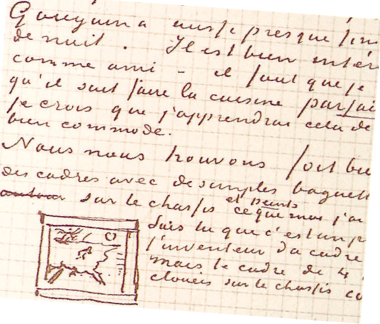 Gauguin a aussi presque fin
de nuit. Il est bien intér
comme ami – il faut que je
qu'il sait faire la cuisine parfai
je crois que j'apprendrai cela de
bien commode.
Nous nous trouvons fort bi
des cadres avec de simples baguett
sur le chassis et peints
ce que j'ai
que c'est un p
l'inventeur du cadre
mais le cadre de 4
clouées sur le chassis co